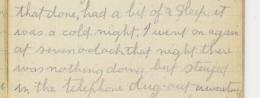 that done, had a bit of a sleep it
was a cold night. I went on again
at seven oclock that night there
was nothing doing but stayed
in the telephone dug-out awaiting